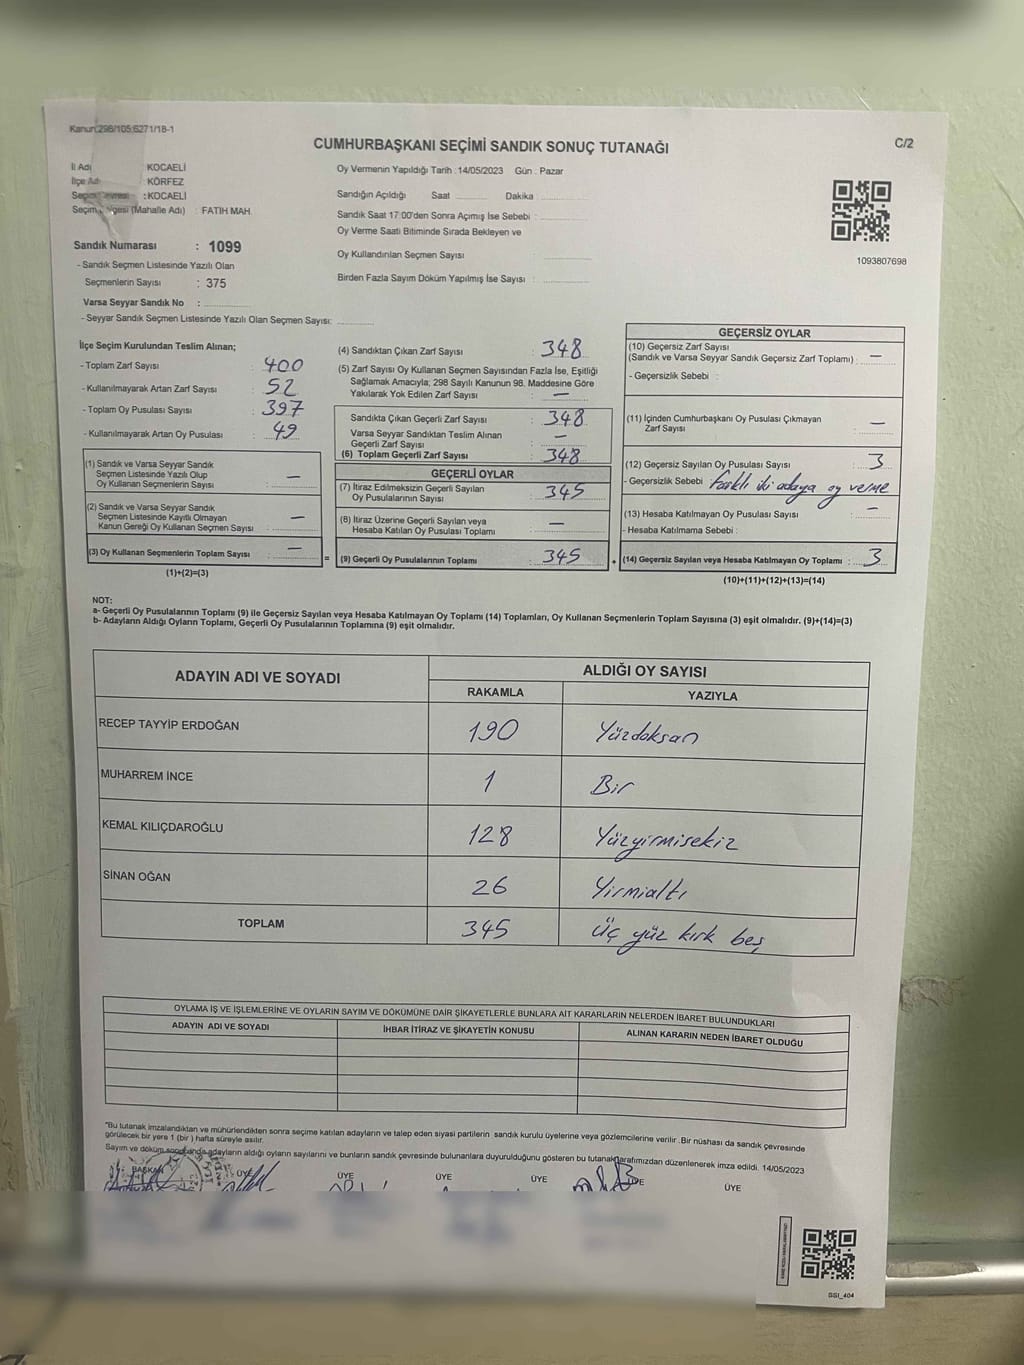 Kanun:298/105;6271/18-1
CUMHURBAŞKANI SEÇİMİ SANDIK SONUÇ TUTANAĞI
C/2
İl Adı : KOCAELİ
İlçe Adı : KÖRFEZ
Seçim Çevresi : KOCAELİ
Seçim Bölgesi (Mahalle Adı) : FATİH MAH.
Sandık Numarası : 1099
- Sandık Seçmen Listesinde Yazılı Olan
Seçmenlerin Sayısı : 375
Varsa Seyyar Sandık No :
- Seyyar Sandık Seçmen Listesinde Yazılı Olan Seçmen Sayısı:
Oy Vermenin Yapıldığı Tarih : 14/05/2023 Gün : Pazar
Sandığın Açıldığı Saat Dakika :
Sandık Saat 17:00'den Sonra Açımış İse Sebebi :
Oy Verme Saati Bitiminde Sırada Bekleyen ve
Oy Kullandırılan Seçmen Sayısı :
Birden Fazla Sayım Döküm Yapılmış İse Sayısı :
1093807698
İlçe Seçim Kurulundan Teslim Alınan;
- Toplam Zarf Sayısı : 400
- Kullanılmayarak Artan Zarf Sayısı : 52
- Toplam Oy Pusulası Sayısı : 397
- Kullanılmayarak Artan Oy Pusulası : 49
(1) Sandık ve Varsa Seyyar Sandık
Seçmen Listesinde Yazılı Olup
Oy Kullanan Seçmenlerin Sayısı : —
(2) Sandık ve Varsa Seyyar Sandık
Seçmen Listesinde Kayıtlı Olmayan
Kanun Gereği Oy Kullanan Seçmen Sayısı : —
(3) Oy Kullanan Seçmenlerin Toplam Sayısı : —
(1)+(2)=(3)
(4) Sandıktan Çıkan Zarf Sayısı : 348
(5) Zarf Sayısı Oy Kullanan Seçmen Sayısından Fazla İse, Eşitliği
Sağlamak Amacıyla; 298 Sayılı Kanunun 98. Maddesine Göre
Yakılarak Yok Edilen Zarf Sayısı : —
Sandıkta Çıkan Geçerli Zarf Sayısı : 348
Varsa Seyyar Sandıktan Teslim Alınan
Geçerli Zarf Sayısı : —
(6) Toplam Geçerli Zarf Sayısı : 348
GEÇERLİ OYLAR
(7) İtiraz Edilmeksizin Geçerli Sayılan
Oy Pusulalarının Sayısı : 345
(8) İtiraz Üzerine Geçerli Sayılan veya
Hesaba Katılan Oy Pusulası Toplamı : —
= (9) Geçerli Oy Pusulalarının Toplamı : 345
GEÇERSİZ OYLAR
(10) Geçersiz Zarf Sayısı
(Sandık ve Varsa Seyyar Sandık Geçersiz Zarf Toplamı) : —
- Geçersizlik Sebebi :
(11) İçinden Cumhurbaşkanı Oy Pusulası Çıkmayan
Zarf Sayısı : —
(12) Geçersiz Sayılan Oy Pusulası Sayısı : 3
- Geçersizlik Sebebi : farklı iki adaya oy verme
(13) Hesaba Katılmayan Oy Pusulası Sayısı : —
- Hesaba Katılmama Sebebi :
(14) Geçersiz Sayılan veya Hesaba Katılmayan Oy Toplamı : 3
(10)+(11)+(12)+(13)=(14)
NOT:
a- Geçerli Oy Pusulalarının Toplamı (9) ile Geçersiz Sayılan veya Hesaba Katılmayan Oy Toplamı (14) Toplamları, Oy Kullanan Seçmenlerin Toplam Sayısına (3) eşit olmalıdır. (9)+(14)=(3)
b- Adayların Aldığı Oyların Toplamı, Geçerli Oy Pusulalarının Toplamına (9) eşit olmalıdır.
ADAYIN ADI VE SOYADI ALDIĞI OY SAYISI
RAKAMLA YAZIYLA
RECEP TAYYİP ERDOĞAN 190 Yüzdoksan
MUHARREM İNCE 1 Bir
KEMAL KILIÇDAROĞLU 128 Yüzyirmisekiz
SİNAN OĞAN 26 Yirmialtı
TOPLAM 345 Üç yüz kırk beş
OYLAMA İŞ VE İŞLEMLERİNE VE OYLARIN SAYIM VE DÖKÜMÜNE DAİR ŞİKAYETLERLE BUNLARA AİT KARARLARIN NELERDEN İBARET BULUNDUKLARI
ADAYIN ADI VE SOYADI İHBAR İTİRAZ VE ŞİKAYETİN KONUSU ALINAN KARARIN NEDEN İBARET OLDUĞU
"Bu tutanak imzalandıktan ve mühürlendikten sonra seçime katılan adayların ve talep eden siyasi partilerin sandık kurulu üyelerine veya gözlemcilerine verilir. Bir nüshası da sandık çevresinde
görülecek bir yere 1 (bir ) hafta süreyle asılır.
Sayım ve döküm sonunda adayların aldığı oyların sayılarını ve bunların sandık çevresinde bulunanlara duyurulduğunu gösteren bu tutanak tarafımızdan düzenlenerek imza edildi. 14/05/2023
BAŞKAN ÜYE ÜYE ÜYE ÜYE ÜYE ÜYE
SSI_404